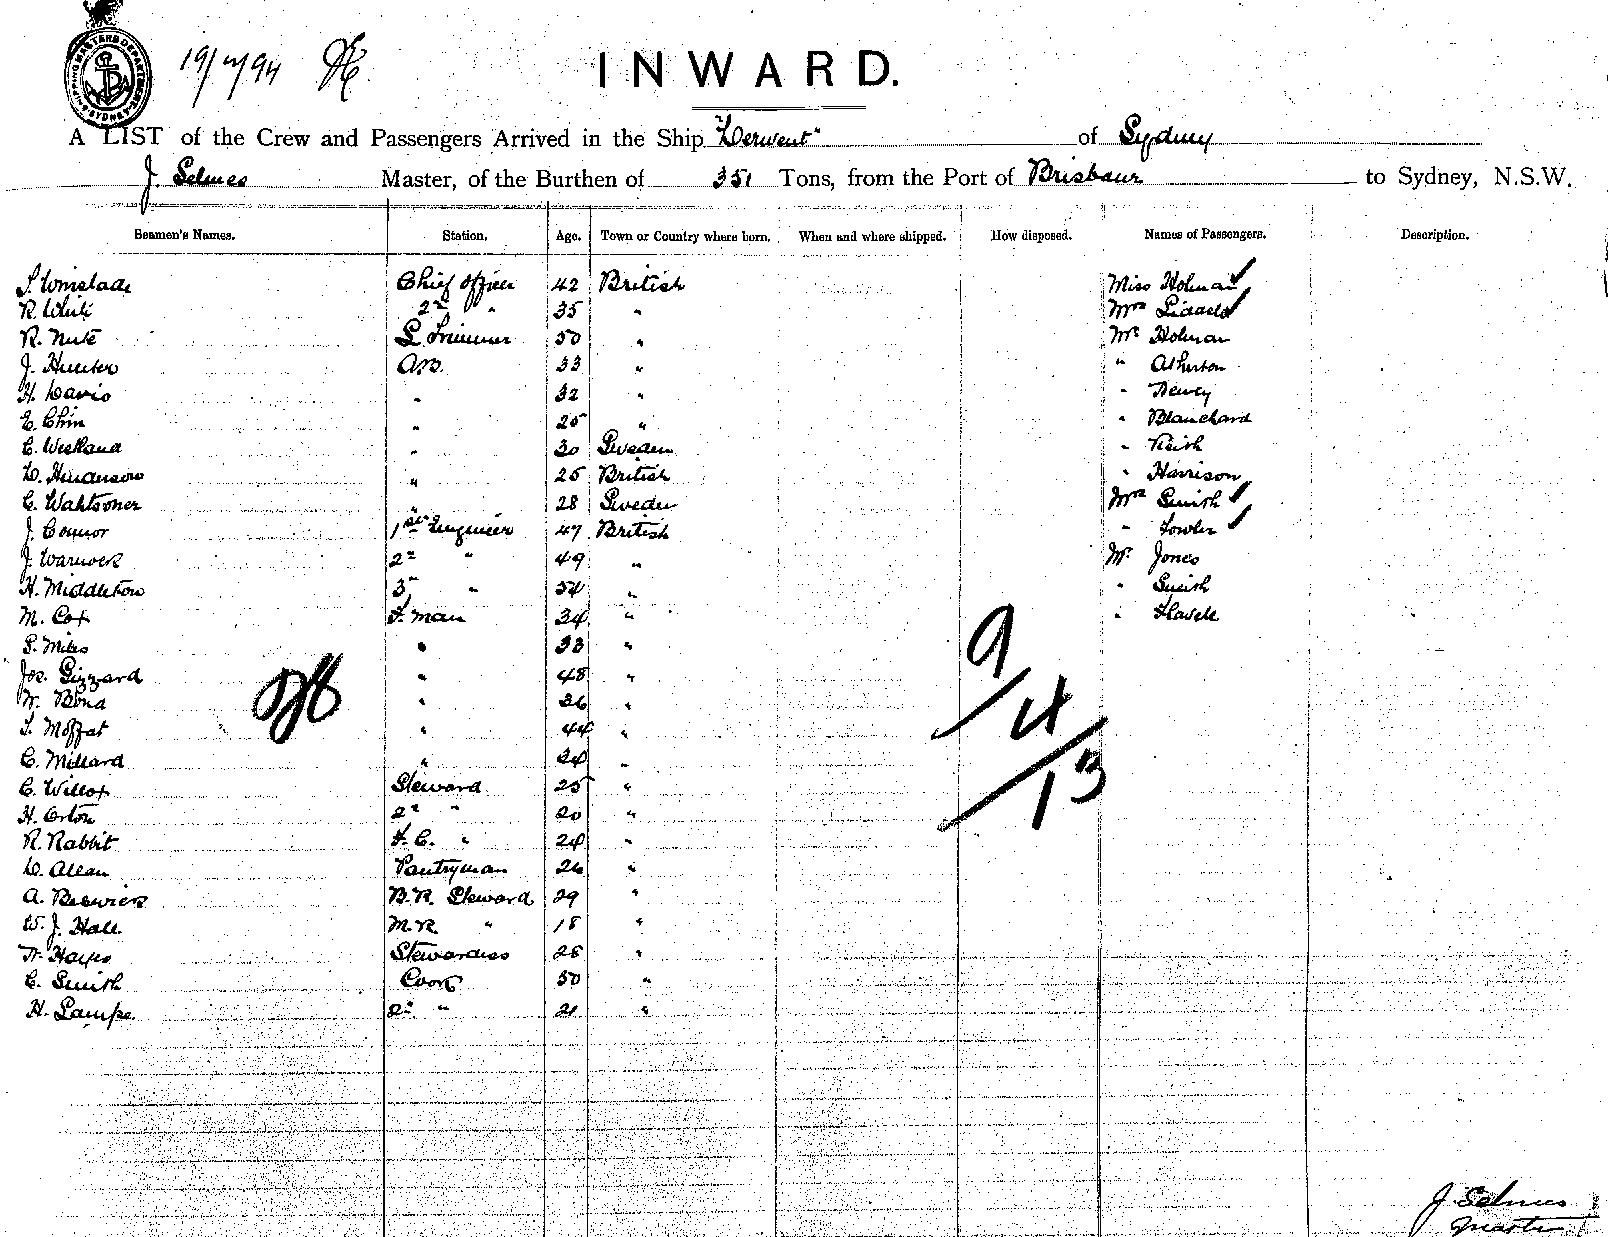 SHIPPING MASTERS DEPARTMENT SYDNEY
19/7/94
INWARD.
A LIST of the Crew and Passengers Arrived in the Ship "Derwent" of Sydney
J. Selmes Master, of the Burthen of 351 Tons, from the Port of Brisbane to Sydney, N.S.W.
Seamen's Names. Station. Age. Town or Country where born. When and where shipped. How disposed. Names of Passengers. Description.
Chief officer 42 British Miss Holman
R. White 2nd " 35 " Mrs
R. Nute 50 " Mr Holman
J. Hunter AB. 33 " " Atherton
H. Davis " 32 " " Dewey
E. Chin " 25 " " Blanchard
C. Westlund " 30 Sweden "
D. Henderson " 25 British " Harrison
C. 28 Sweden Mrs Smith
J. Connor 1st Engineer 47 British " Fowler
J. Warwick 2nd " 49 " Mr Jones
H. Middleton 3rd " 54 " " Smith
M. Cox F. man 34 " "
S. Miles " 33 "
Jos. Gizzard " 48 "
W. Bond " 36 "
T. Moffat " 44 "
C. Millard " "
C. Willox Steward 25 "
H. Orton 2nd " 20 "
R. Rabbit F.C. " 24 "
D. Allan Pantryman 26 "
A. Beswick B.R. Steward 29 "
W. J. Hall M.R. " 18 "
Hayes Stewardess 28 "
C. Smith Cook 50 "
H. Lampe 2nd " 21 "
9/4/13
J. Selmes
Master